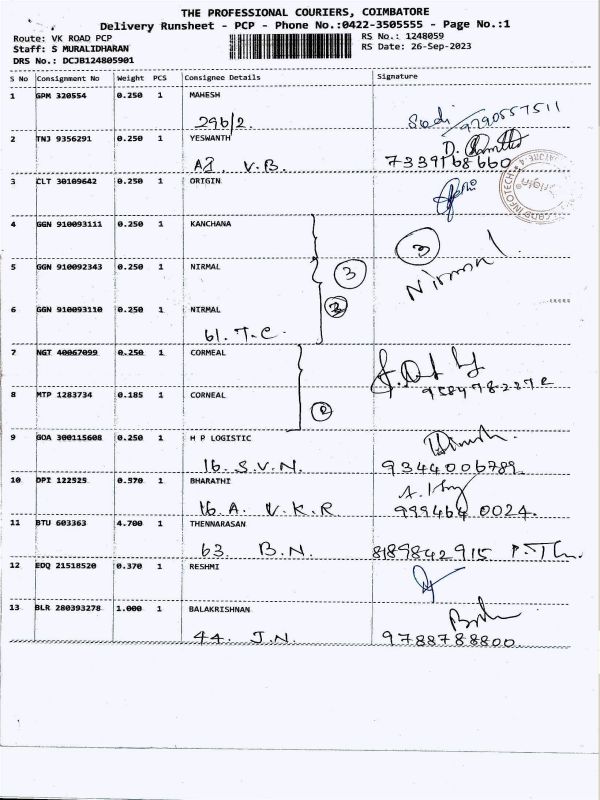 THE PROFESSIONAL COURIERS, COIMBATORE
Delivery Runsheet - PCP - Phone No.:0422-3505555 - Page No.:1
Route: VK ROAD PCP RS No.: 1248059
Staff: S MURALIDHARAN RS Date: 26-Sep-2023
DRS No.: DCJB124805901
S No Consignment No Weight PCS Consignee Details Signature
1 GPM 320554 0.250 1 MAHESH
296/2. 9790557511
2 TNJ 9356291 0.250 1 YESWANTH
V.B. 7339168660
3 CLT 30109642 0.250 1 ORIGIN
4 GGN 910093111 0.250 1 KANCHANA
3
5 GGN 910092343 0.250 1 NIRMAL
3 Nirmal
6 GGN 910093110 0.250 1 NIRMAL
61. T.C.
7 NGT 40067099 0.250 1 CORMEAL
8 MTP 1283734 0.185 1 CORNEAL
2
9 GOA 300115608 0.250 1 H P LOGISTIC
16. S.V.N. 9344006789
10 DPI 122525 0.570 1 BHARATHI
16. A. V.K.R 999464 0024.
11 BTU 603363 4.700 1 THENNARASAN
63. B.N. 8189842915
12 EDQ 21518520 0.370 1 RESHMI
13 BLR 280393278 1.000 1 BALAKRISHNAN
44. J.N. 9788788800.